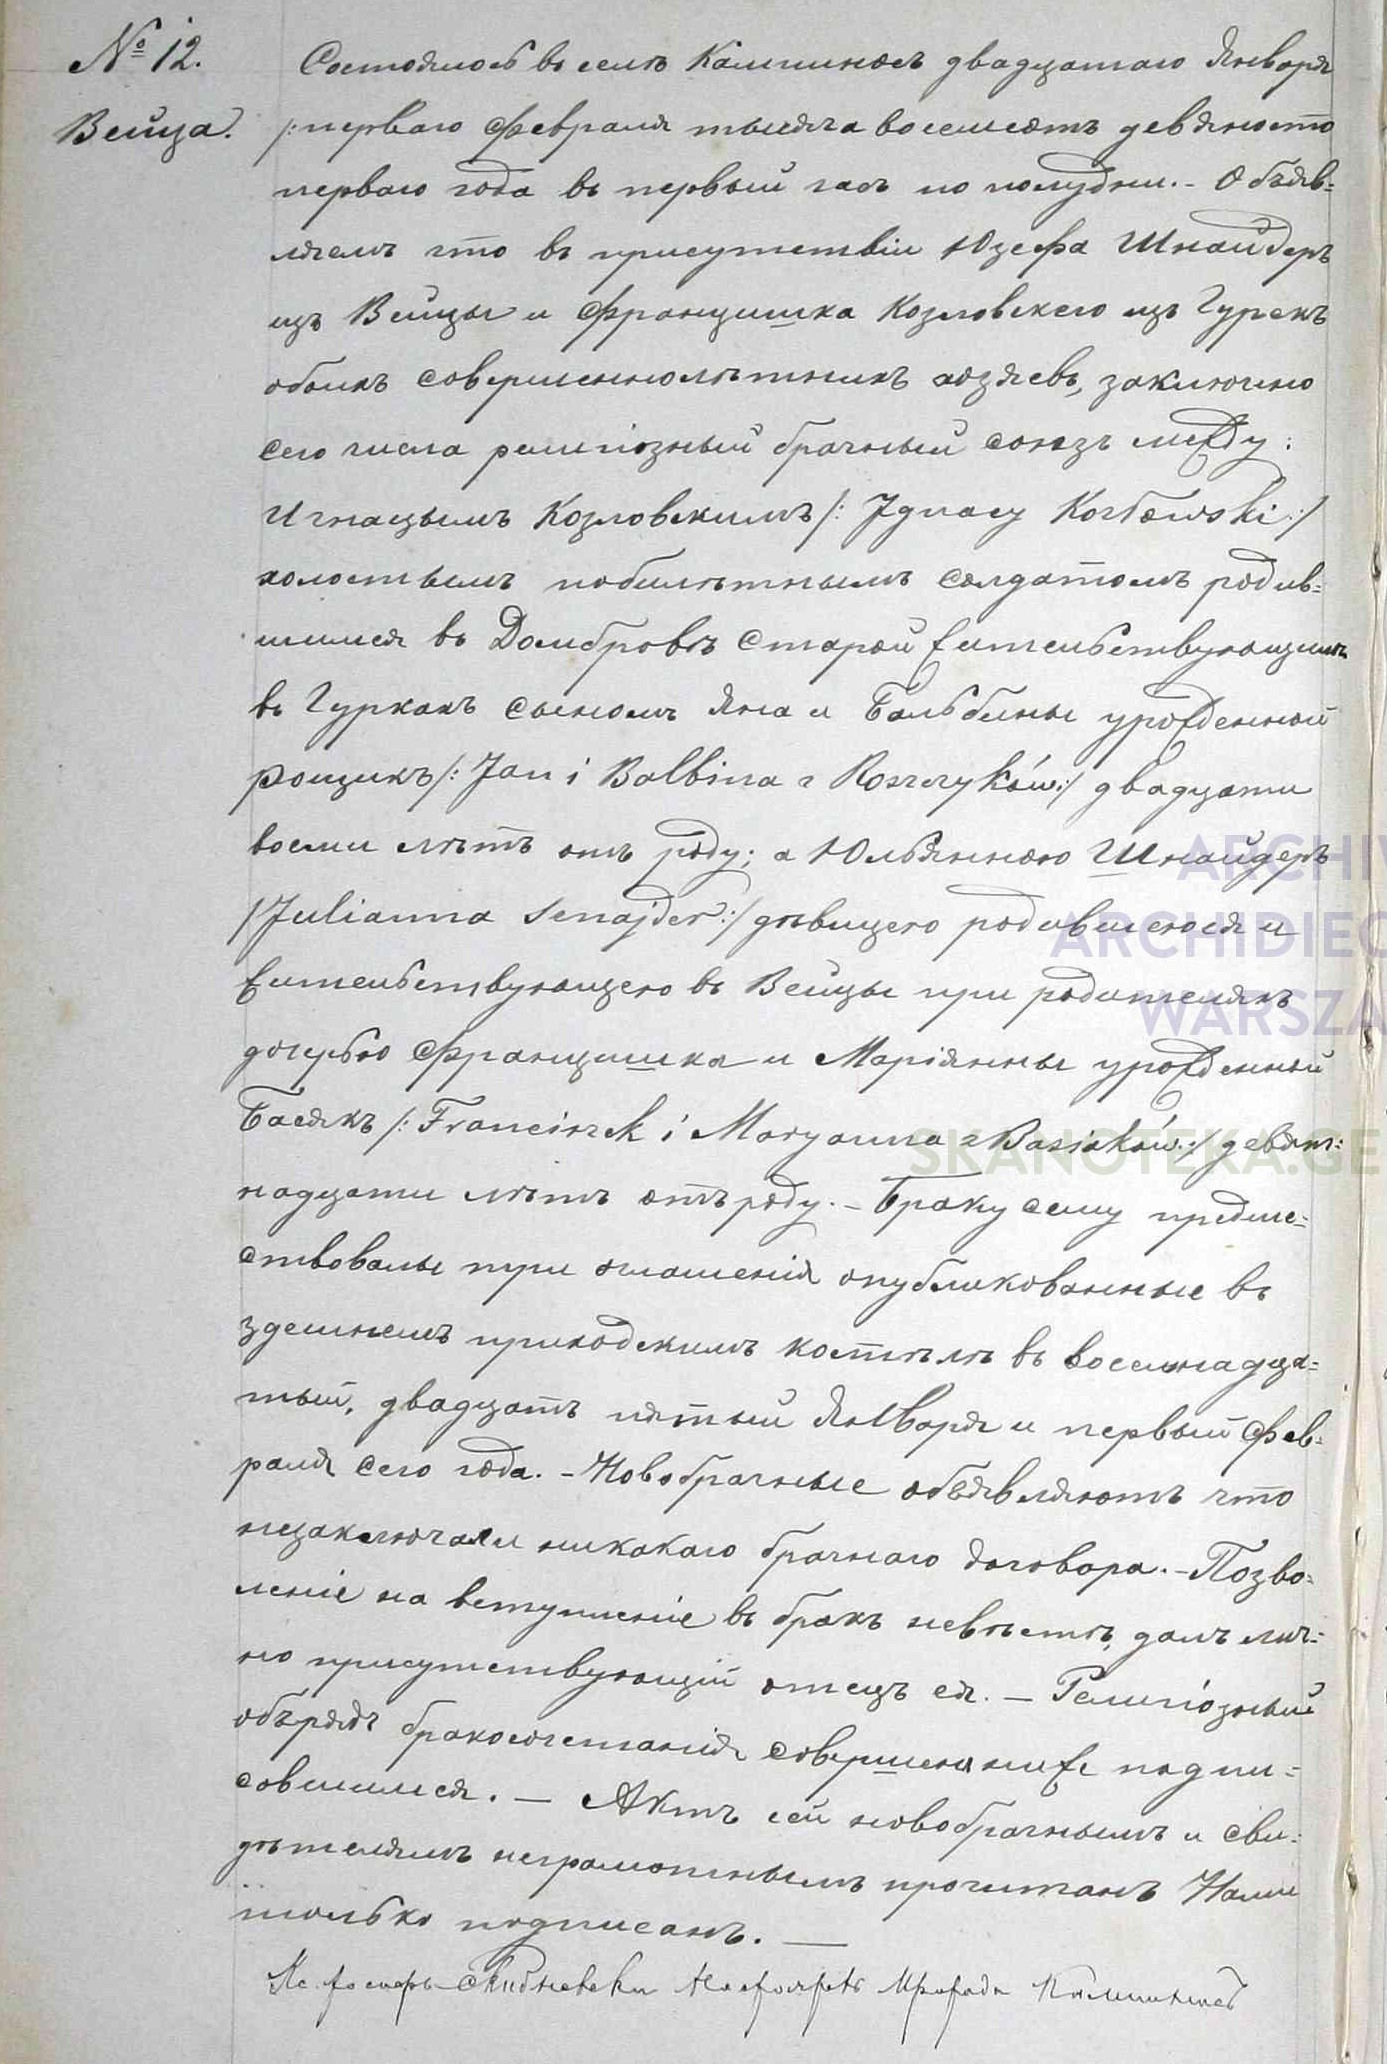 № 12.
Вейца.
Состоялось въ селѣ Кампиносъ двадцатаго Января
/:перваго Февраля тысяча восемьсотъ девяносто
перваго года въ первый часъ по полудни.- Объяв-
ляемъ что въ присутствіи Юзефа Шнайдеръ
изъ Вейцы и Францишка Козловскего изъ Гурекъ
обоихъ совершеннолѣтнихъ хозяевъ, заключено
сего числа религіозный брачный союзъ между:
Игнацымъ Козловскимъ /: Ignacy Kozłowski :/
холостымъ побилѣтнымъ солдатомъ родив-
шимся въ Домбровѣ Старой жительствующимъ
въ Гуркахъ сыномъ Яна и Бальбины урожденной
Рощикъ /: Jan i Balbina z Roszczyków:/ двадцати
восми лѣтъ отъ роду; а Юльянною Шнайдеръ
/Julianna Sznajder:/ дѣвицею родившеюся и
жительствующею въ Вейцы при родителяхъ
дочерью Францишка и Маріянны урожденной
Басякъ /: Franciszek i Maryanna z Basiaków:/ девят-
надцати лѣтъ отъ роду.- Браку сему предше-
ствовалы три оглашенія опубликованные въ
здешнемъ приходскимъ костѣлѣ въ восемнадца-
тый, двадцать пятый Января и первый Фев-
раля сего года.- Новобрачные объявляютъ что
незаключали никакаго брачнаго договора.- Позво-
леніе на вступленіе въ бракъ невѣстѣ далъ лич-
но присутствующій отецъ ея.- Религіозный
обърядъ бракосочетанія совершенъ нижеподпи-
совшимся. - Актъ сей новобрачнымъ и сви-
дѣтелямъ неграмотнымъ прочитанъ Нами
только подписанъ. -
Кс. Скибневски Настоятель Прихода Кампиносъ